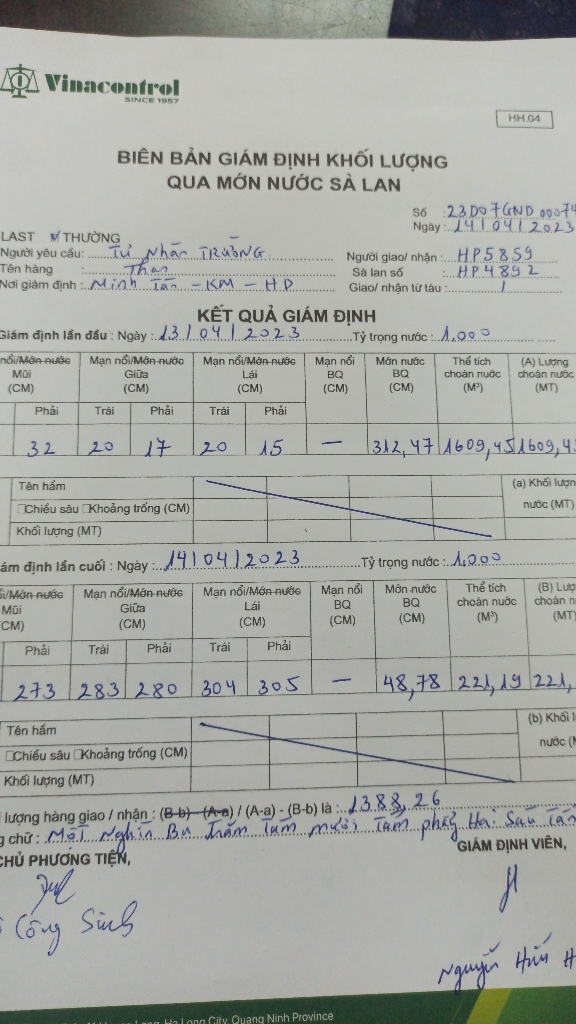 Vinacontrol
SINCE 1957
HH.04
BIÊN BẢN GIÁM ĐỊNH KHỐI LƯỢNG
QUA MỚN NƯỚC SÀ LAN
Số : 23D07GND 00074
Ngày : 14/04/2023
LAST THƯỜNG
Người yêu cầu: Tư Nhân TRƯỜNG
Người giao/ nhận : HP5859
Tên hàng : Than
Sà lan số : HP4892
Nơi giám định : Minh Tân - KM - HD
Giao/ nhận từ tàu : /
KẾT QUẢ GIÁM ĐỊNH
Giám định lần đầu : Ngày : 13/04/2023 Tỷ trọng nước : 1,000
nổi/Mớn nước Mạn nổi/Mớn nước Mạn nổi/Mớn nước Mạn nổi Mớn nước Thể tích (A) Lượng
Mũi Giữa Lái BQ BQ choán nước choán nước
(CM) (CM) (CM) (CM) (CM) (M³) (MT)
Phải Trái Phải Trái Phải
32 20 17 20 15 — 312,47 1609,45 1609,4
Tên hầm (a) Khối lượn
Chiều sâu Khoảng trống (CM) nước (MT)
Khối lượng (MT)
ám định lần cuối : Ngày : 14/04/2023 Tỷ trọng nước : 1,000
i/Mớn nước Mạn nổi/Mớn nước Mạn nổi/Mớn nước Mạn nổi Mớn nước Thể tích (B) Lượ
Mũi Giữa Lái BQ BQ choán nước choán n
CM) (CM) (CM) (CM) (CM) (M³) (MT)
Phải Trái Phải Trái Phải
273 283 280 304 305 — 48,78 221,19 221,
Tên hầm (b) Khối l
Chiều sâu Khoảng trống (CM) nước (M
Khối lượng (MT)
i lượng hàng giao / nhận : (B-b) - (A-a) / (A-a) - (B-b) là : 1388,26
g chữ : Một Nghìn Ba Trăm Tám mươi Tám phẩy Hai Sáu Tấn
CHỦ PHƯƠNG TIỆN, GIÁM ĐỊNH VIÊN,
Công Sinh
Nguyễn Hữu H
Ha Long City, Quang Ninh Province